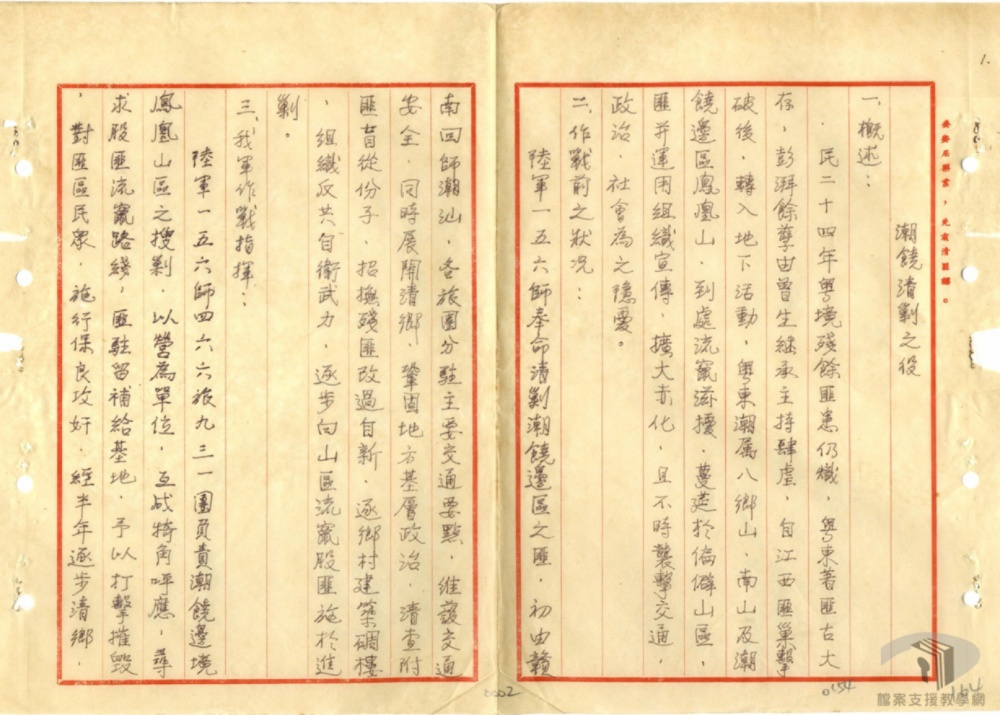 1.
潮饒清剿之役
一、概述：
民二十四年粵境殘餘匪患仍熾，粵東著匪古大
存，彭湃餘孽由曾生繼承主持肆虐，自江西匪巢擊
破後，轉入地下活動，粵東潮属八鄉山、南山及潮
饒邊區鳳凰山，到處流竄滋擾，蔓延於偏僻山區，
匪并運用組織宣傳，擴大赤化，且不時襲擊交通，
政治，社會為之隱憂。
二、作戰前之狀況：
陸軍一五六師奉命清剿潮饒邊區之匪，初由贛
南回師潮汕，各旅團分駐主要交通要點，維護交通
安全，同時展開清鄉，鞏固地方基層政治，清查附
匪盲從份子，招撫殘匪改過自新，逐鄉村建築碉樓
，組織反共自衛武力，逐步向山區流竄股匪施於進
剿。
三、我軍作戰指揮：
陸軍一五六師四六六旅九三一團負責潮饒邊境
鳳凰山區之搜剿，以營為單位，互成犄角呼應，尋
求股匪流竄路綫，匪駐留補給基地，予以打擊摧毀
，對匪區民眾，施行保良攻奸，經半年逐步清鄉，
0002
0154
164
檔案支援教學網